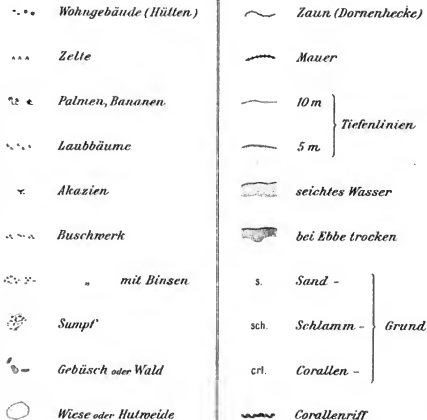 Wohngebäude (Hütten)
Zelte
Palmen, Bananen
Laubbäume
Akazien
Buschwerk
" mit Binsen
Sumpf
Gebüsch oder Wald
Wiese oder Hutweide
Zaun (Dornenhecke)
Mauer
10 m
5 m
Tiefenlinien
seichtes Wasser
bei Ebbe trocken
s. Sand -
sch. Schlamm -
crl. Corallen -
Grund
Corallenriff